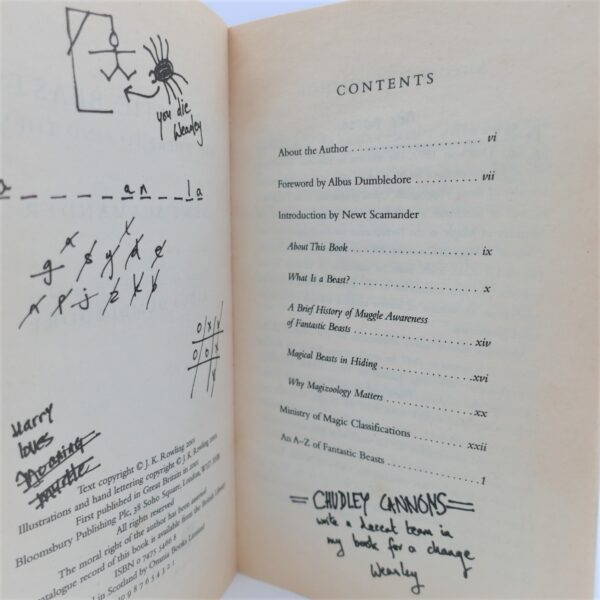 you die
Weasley
a _ _ _ _ _ an _ la
O X X
O O X
X
Harry
loves
Moaning
Myrtle
Text copyright © J. K. Rowling 2001
Illustrations and hand lettering copyright © J. K. Rowling 2001
First published in Great Britain in 2001
Bloomsbury Publishing Plc, 38 Soho Square, London, W1D
All rights reserved
The moral right of the author has been asserted
catalogue record of this book is available from the British Library
ISBN 0 7475 5466 8
in Scotland by Omnia Books Limited
9 8 7 6 5 4 3 2 1
CONTENTS
About the Author . . . . . . . . . . . . . . . . . . . . . . vi
Foreword by Albus Dumbledore . . . . . . . . . . . vii
Introduction by Newt Scamander
About This Book . . . . . . . . . . . . . . . . . . . . ix
What Is a Beast? . . . . . . . . . . . . . . . . . . . . x
A Brief History of Muggle Awareness
of Fantastic Beasts . . . . . . . . . . . . . . . . . . xiv
Magical Beasts in Hiding . . . . . . . . . . . . . xvi
Why Magizoology Matters . . . . . . . . . . . . . xx
Ministry of Magic Classifications . . . . . . . . . xxii
An A–Z of Fantastic Beasts . . . . . . . . . . . . . . 1
= CHUDLEY CANNONS =
write a decent team in
my book for a change
Weasley